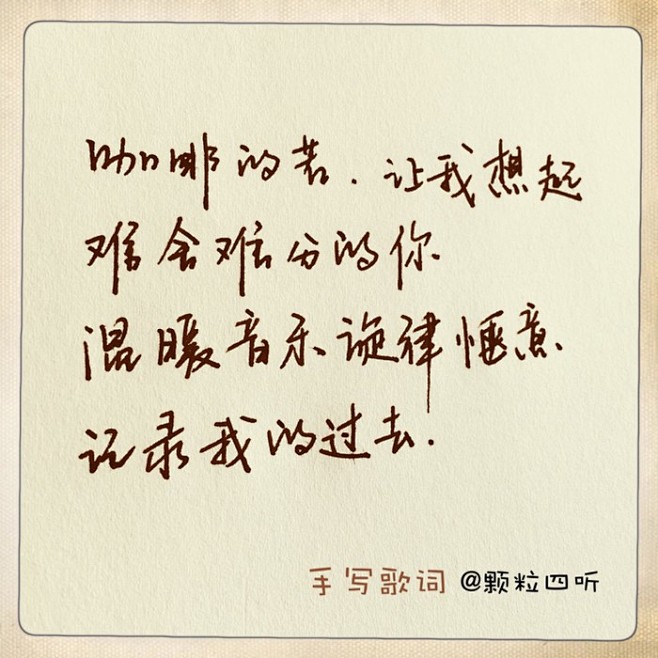 咖啡的苦.让我想起
难舍难分的你
温暖音乐旋律惬意
记录我的过去.
手写歌词 @颗粒四听